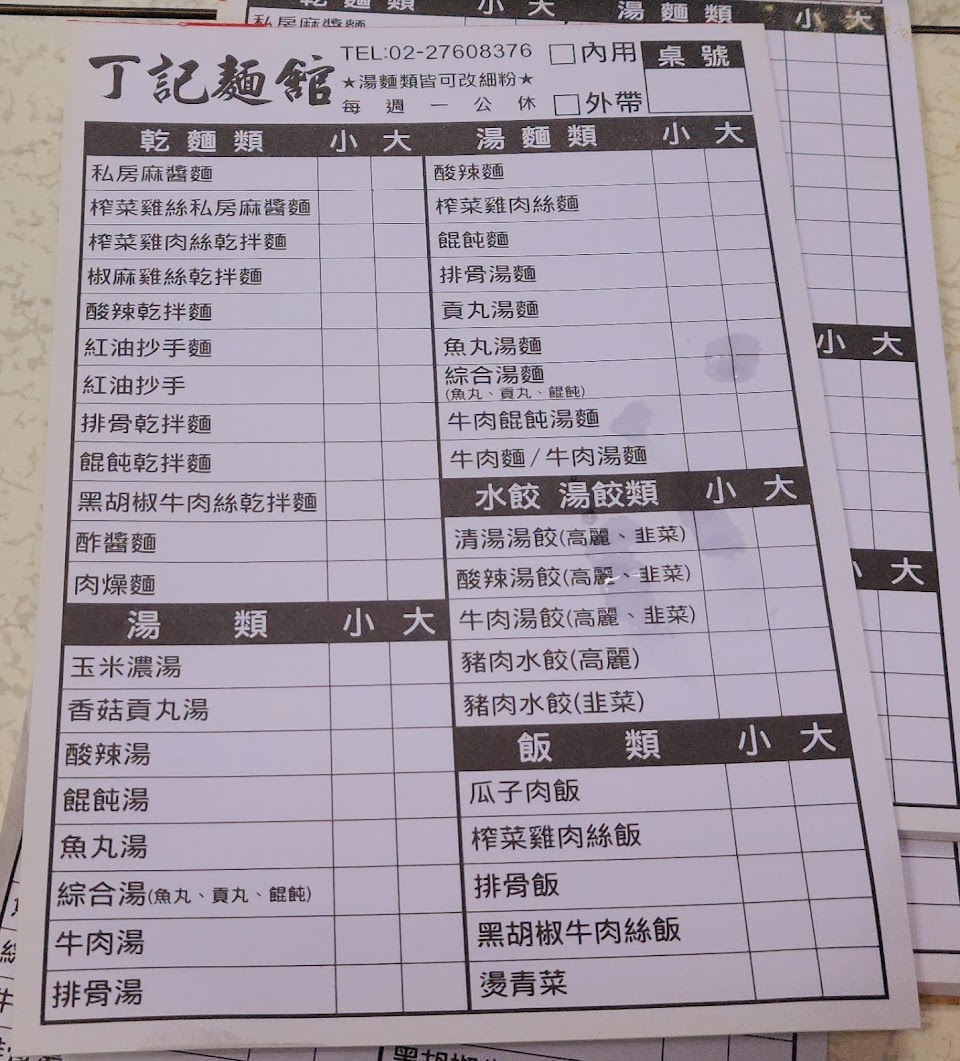 丁記麵館
TEL:02-27608376
★湯麵類皆可改細粉★
每週一公休
□內用
□外帶
桌號
乾麵類 小 大
私房麻醬麵
榨菜雞絲私房麻醬麵
榨菜雞肉絲乾拌麵
椒麻雞絲乾拌麵
酸辣乾拌麵
紅油抄手麵
紅油抄手
排骨乾拌麵
餛飩乾拌麵
黑胡椒牛肉絲乾拌麵
酢醬麵
肉燥麵
湯類 小 大
玉米濃湯
香菇貢丸湯
酸辣湯
餛飩湯
魚丸湯
綜合湯(魚丸、貢丸、餛飩)
牛肉湯
排骨湯
湯麵類 小 大
酸辣麵
榨菜雞肉絲麵
餛飩麵
排骨湯麵
貢丸湯麵
魚丸湯麵
綜合湯麵
(魚丸、貢丸、餛飩)
牛肉餛飩湯麵
牛肉麵/牛肉湯麵
水餃 湯餃類 小 大
清湯湯餃(高麗、韭菜)
酸辣湯餃(高麗、韭菜)
牛肉湯餃(高麗、韭菜)
豬肉水餃(高麗)
豬肉水餃(韭菜)
飯類 小 大
瓜子肉飯
榨菜雞肉絲飯
排骨飯
黑胡椒牛肉絲飯
燙青菜
乾麵類 小 大
私房麻醬麵
湯麵類 小 大
小 大
大
黑胡椒